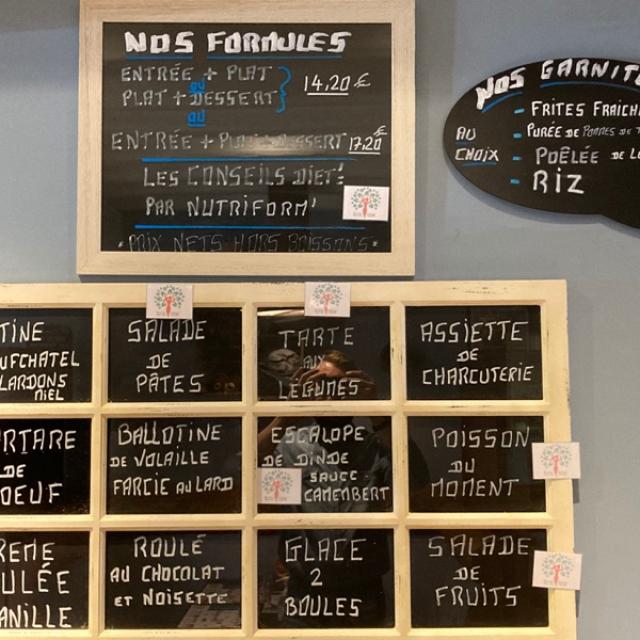 NOS FORMULES
ENTRÉE + PLAT
ou
PLAT + DESSERT
14,20 €
ou
ENTRÉE + PLAT + DESSERT 17,20 €
LES CONSEILS DIET!
PAR NUTRIFORM'
PRIX NETS HORS BOISSONS
NOS GARNIT
AU CHOIX
- FRITES FRAICH
- PURÉE DE POMMES DE T
- POÊLÉE DE L
- RIZ
TINE
UFCHATEL
LARDONS
MIEL
SALADE
DE
PÂTES
TARTE
AUX
LÉGUMES
ASSIETTE
DE
CHARCUTERIE
RTARE
DE
OEUF
BALLOTINE
DE VOLAILLE
FARCIE AU LARD
ESCALOPE
DE DINDE
SAUCE
CAMEMBERT
POISSON
DU
MOMENT
REME
ULÉE
ANILLE
ROULÉ
AU CHOCOLAT
ET NOISETTE
GLACE
2
BOULES
SALADE
DE
FRUITS